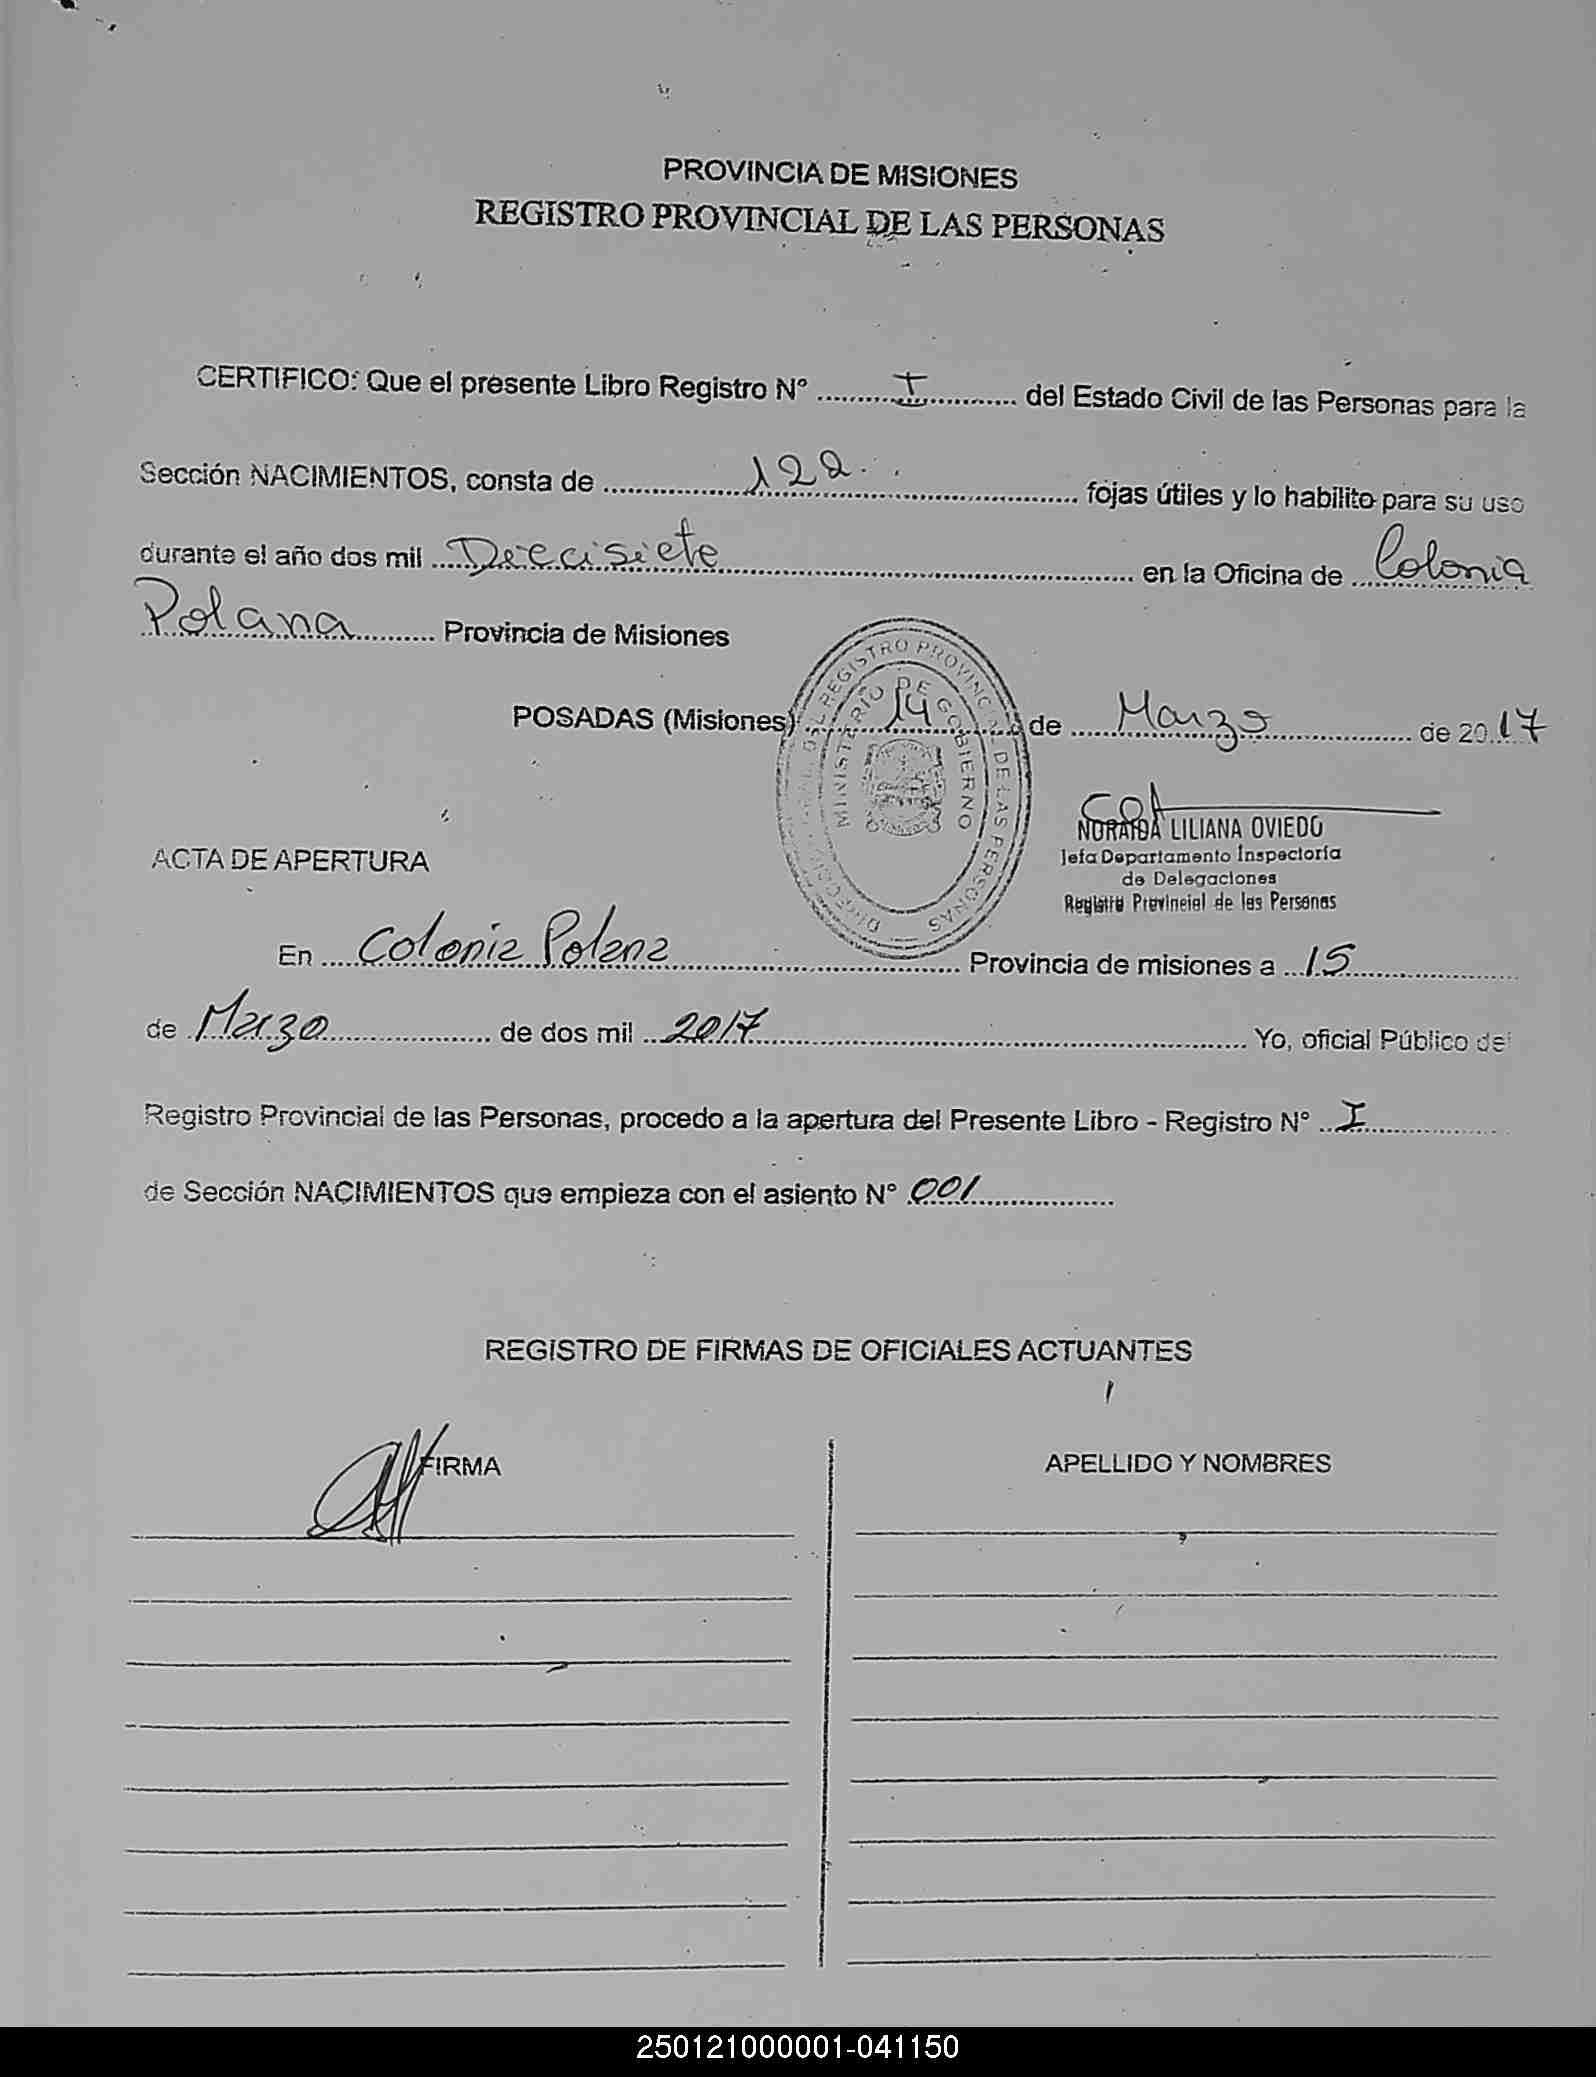 PROVINCIA DE MISIONES
REGISTRO PROVINCIAL DE LAS PERSONAS
CERTIFICO: Que el presente Libro Registro Nº I del Estado Civil de las Personas para la
Sección NACIMIENTOS, consta de 122 fojas útiles y lo habilito para su uso
durante el año dos mil Diecisiete en la Oficina de Colonia
Polana Provincia de Misiones
POSADAS (Misiones) 14 de Marzo de 2017
DIRECCION GENERAL DEL REGISTRO PROVINCIAL DE LAS PERSONAS
MINISTERIO DE GOBIERNO
NORAIDA LILIANA OVIEDO
Jefa Departamento Inspectoría
de Delegaciones
Registro Provincial de las Personas
ACTA DE APERTURA
En Colonia Polana Provincia de misiones a 15
de Marzo de dos mil 2017 Yo, oficial Público del
Registro Provincial de las Personas, procedo a la apertura del Presente Libro - Registro Nº I
de Sección NACIMIENTOS que empieza con el asiento Nº 001
REGISTRO DE FIRMAS DE OFICIALES ACTUANTES
FIRMA APELLIDO Y NOMBRES
250121000001-041150